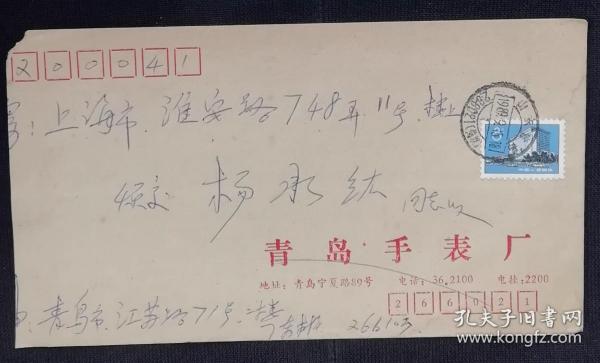 200041
寄:上海市、淮安路748弄11号 楼上
烦交 杨永纮 同志收
青岛手表厂
地址:青岛宁夏路89号 电话:36.2100 电挂:2200
266021
青岛市、江苏路71号 266103
孔夫子旧书网